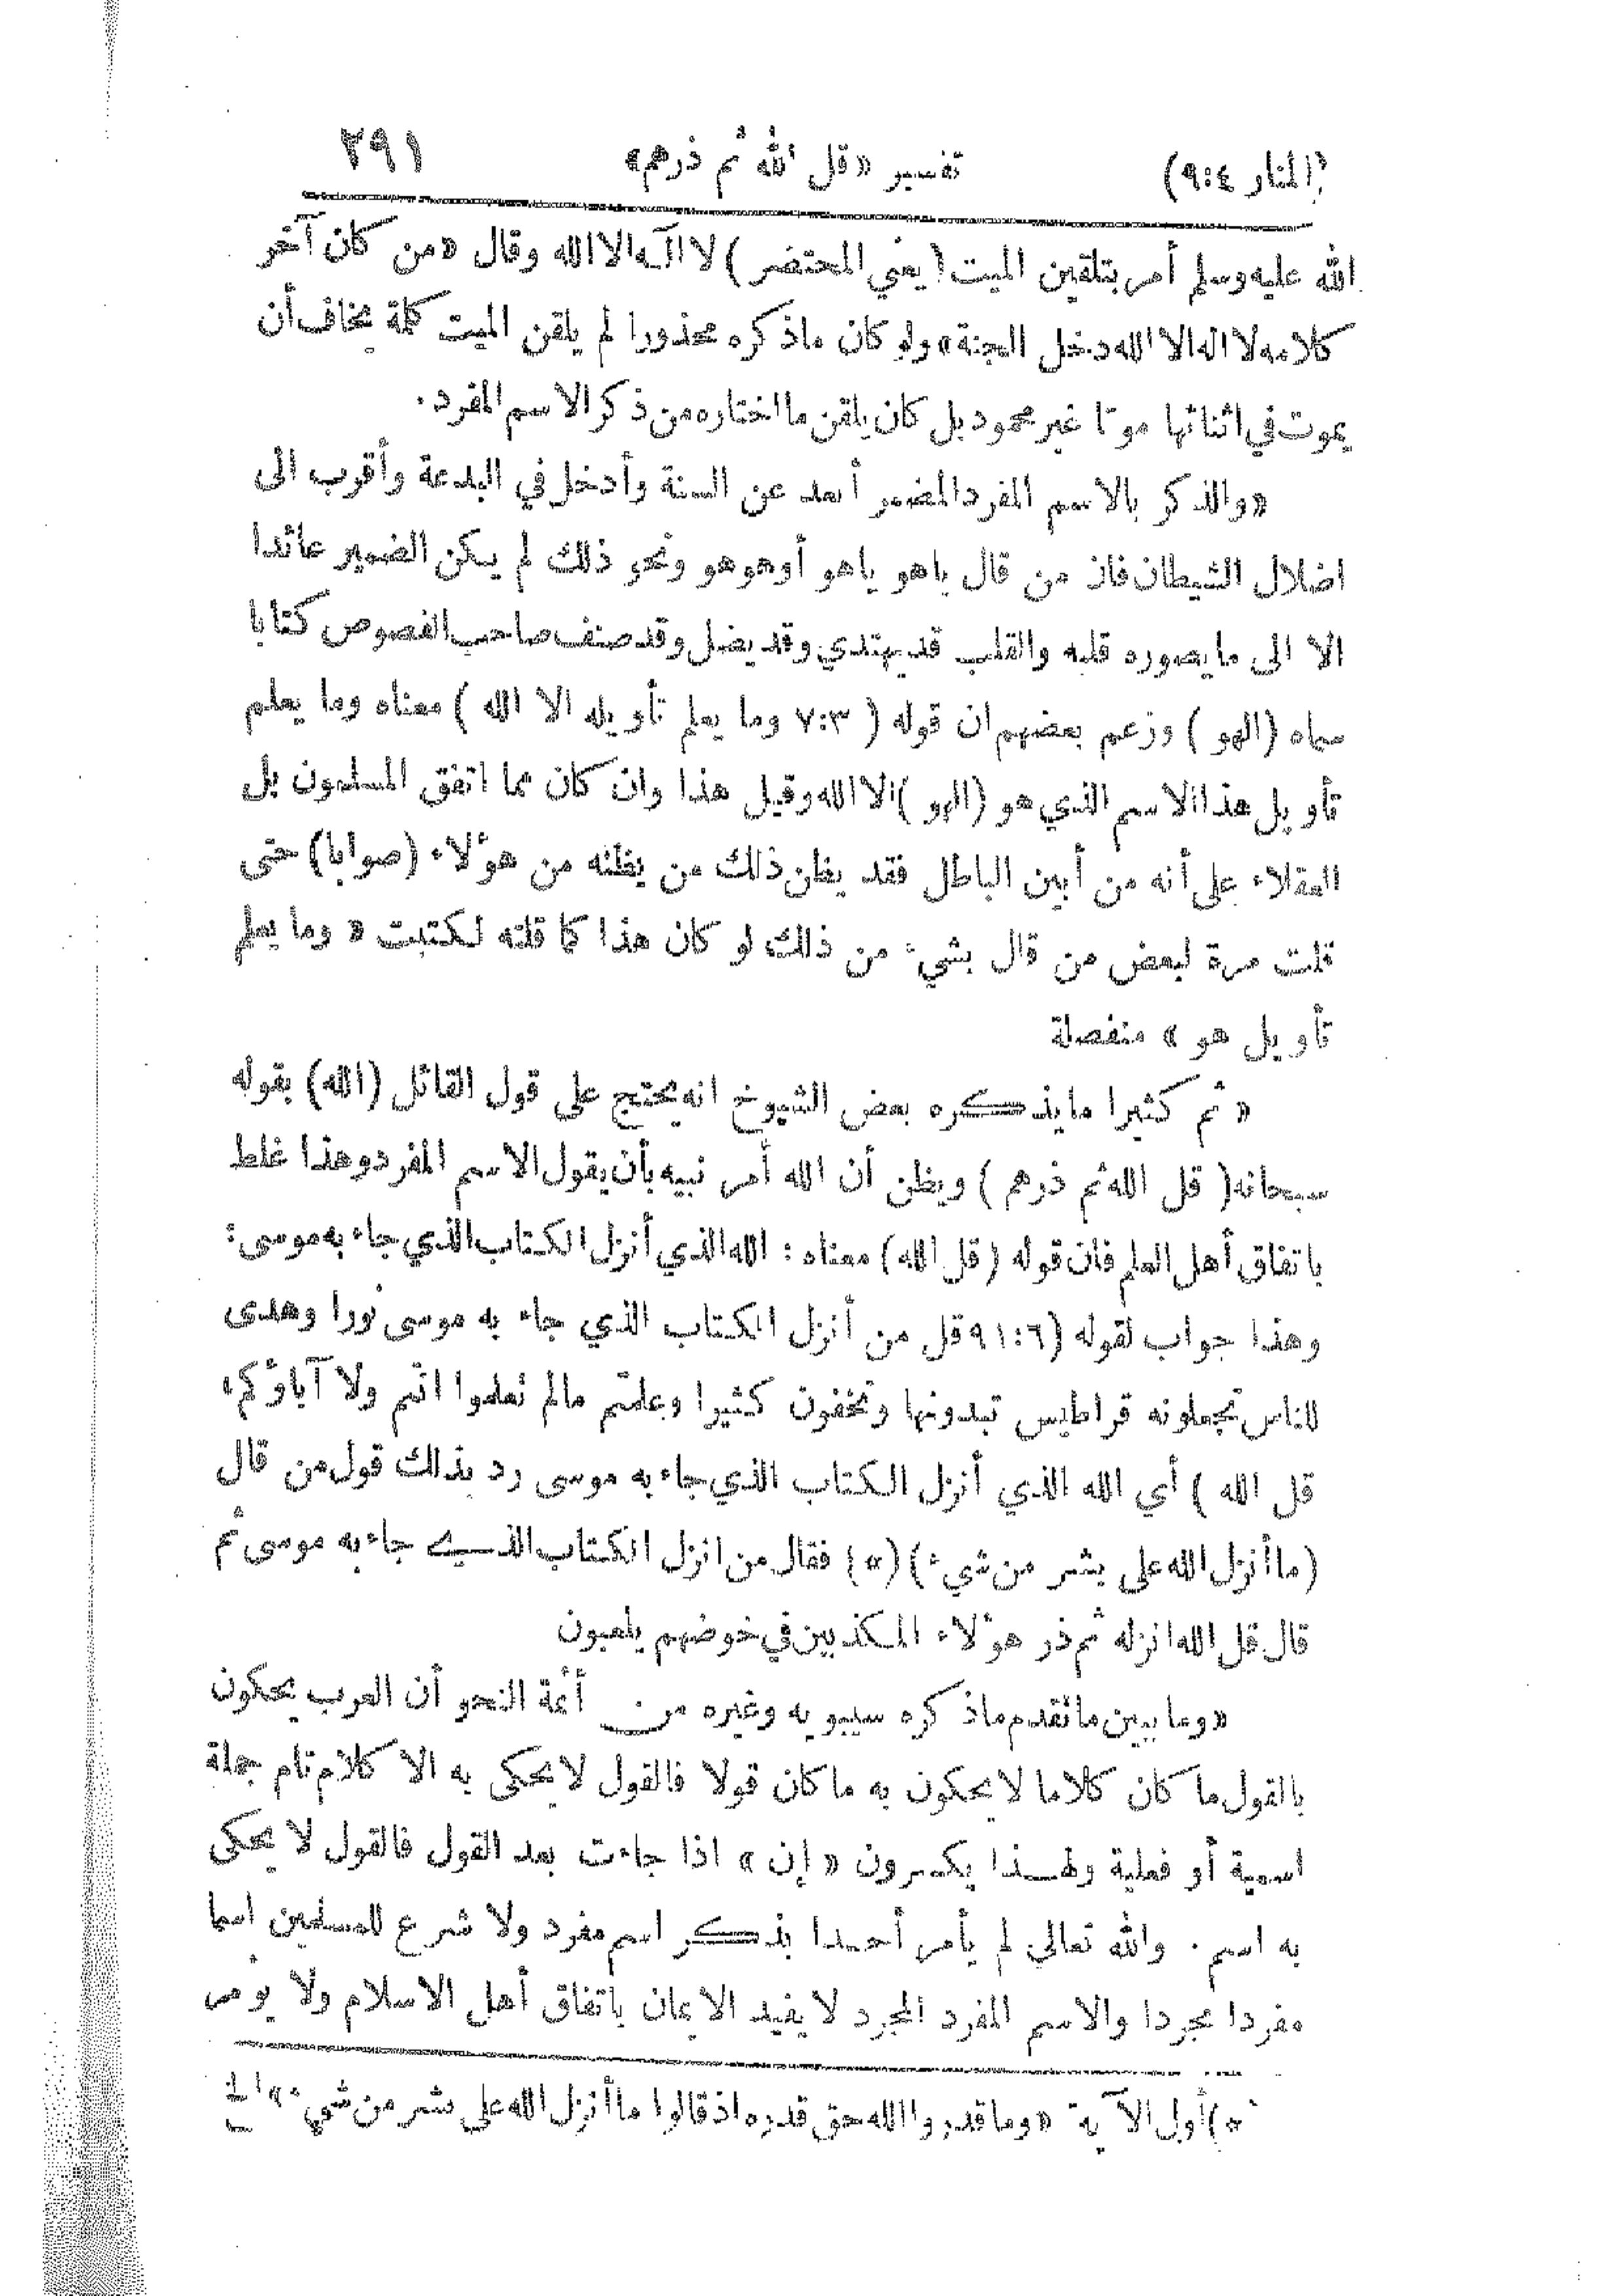 (المنار ٩:٤) تفسير «قل الله ثم ذرهم» ٢٩١
الله عليه وسلم أمر بتلقين الميت (يعني المحتضر) لا آله الا الله وقال «من كان آخر
كلامه لا اله الا الله دخل الجنة» ولو كان ماذكره محذورا لم يلقن الميت كلمة يخاف أن
يموت في اثنائها موتا غير محمود بل كان يلقن ما اختاره من ذكر الاسم المفرد.
«والذكر بالاسم المفرد المضمر أبعد عن السنة وأدخل في البدعة وأقرب الى
اضلال الشيطان فان من قال ياهو ياهو أو هو هو ونحو ذلك لم يكن الضمير عائدا
الا الى مايصوره قلبه والقلب قد يهتدي وقد يضل وقد صنف صاحب الفصوص كتابا
سماه (الهو) وزعم بعضهم ان قوله (٧:٣ وما يعلم تأويله الا الله) معناه وما يعلم
تأويل هذا الاسم الذي هو (الهو) الا الله وقيل هذا وان كان مما اتفق المسلمون بل
العقلاء على أنه من أبين الباطل فقد يظن ذلك من يظنه من هؤلاء (صوابا) حتى
قلت مرة لبعض من قال بشيء من ذلك لو كان هذا كما قلته لكتبت «وما يعلم
تأويل هو» منفصلة
«ثم كثيرا مايذكره بعض الشيوخ انه يحتج على قول القائل (الله) بقوله
سبحانه (قل الله ثم ذرهم) ويظن أن الله أمر نبيه بأن يقول الاسم المفرد وهذا غلط
باتفاق أهل العلم فان قوله (قل الله) معناه: الله الذي أنزل الكتاب الذي جاء به موسى:
وهذا جواب لقوله (٩١:٦ قل من أنزل الكتاب الذي جاء به موسى نورا وهدى
للناس تجعلونه قراطيس تبدونها وتخفون كثيرا وعلمتم مالم تعلموا انتم ولا آباؤكم،
قل الله) أي الله الذي أنزل الكتاب الذي جاء به موسى رد بذلك قول من قال
(ما أنزل الله على بشر من شيء) (*) فقال من انزل الكتاب الذي جاء به موسى ثم
قال قل الله انزله ثم ذر هؤلاء المكذبين في خوضهم يلعبون
«ومما يبين ماتقدم ماذكره سيبويه وغيره من أئمة النحو أن العرب يحكون
بالقول ما كان كلاما لا يحكون به ما كان قولا فالقول لا يحكى به الا كلام تام جملة
اسمية أو فعلية ولهذا يكسرون «إن» اذا جاءت بعد القول فالقول لا يحكى
به اسم. والله تعالى لم يأمر أحدا بذكر اسم مفرد ولا شرع للمسلمين اسما
مفردا مجردا والاسم المفرد المجرد لا يفيد الايمان باتفاق أهل الاسلام ولا يؤمر
*) أول الآية «وما قدروا الله حق قدره اذ قالوا ما أنزل الله على بشر من شيء» الخ